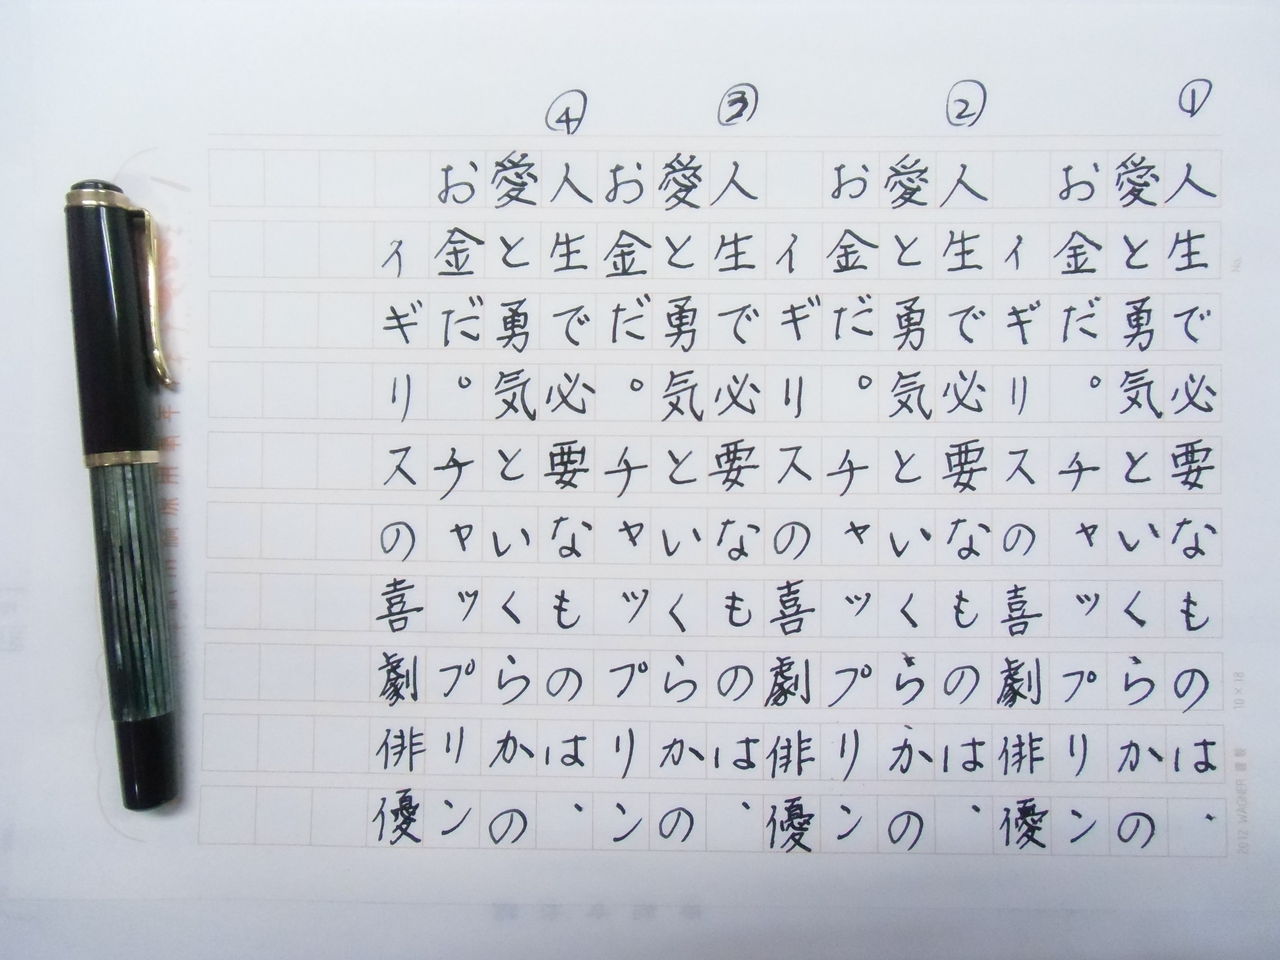 ①
人生で必要なものは、
愛と勇気といくらかの
お金だ。チャップリン
イギリスの喜劇俳優
②
人生で必要なものは、
愛と勇気といくらかの
お金だ。チャップリン
イギリスの喜劇俳優
③
人生で必要なものは、
愛と勇気といくらかの
お金だ。チャップリン
④
人生で必要なものは、
愛と勇気といくらかの
お金だ。チャップリン
イギリスの喜劇俳優
No.
10×18
2012 WAGNER